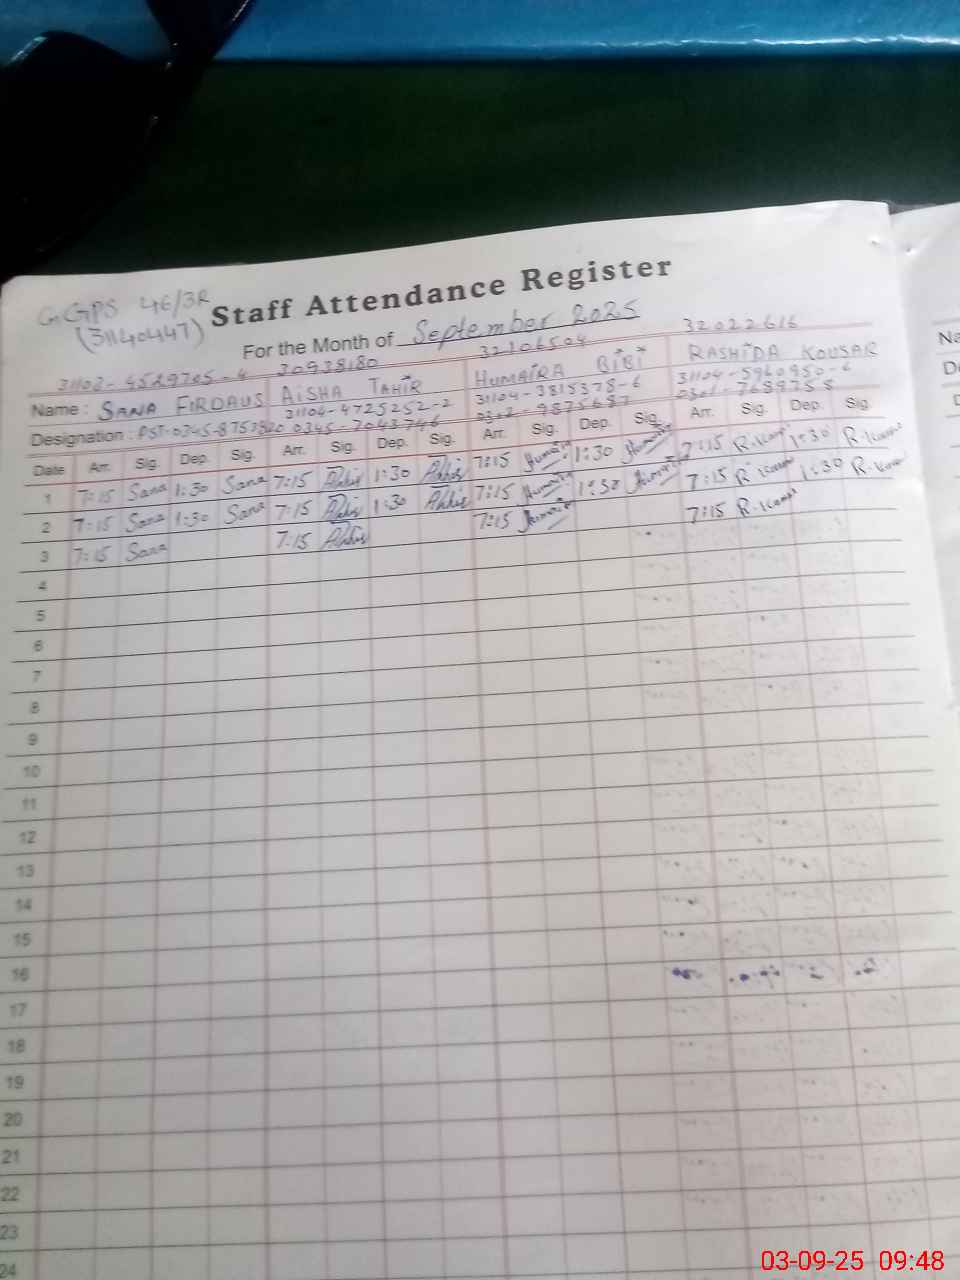 GGPS 46/3R
(31140447)
Staff Attendance Register
For the Month of September 2025
31102-4529705-4 30938180 32106504 32022616
Name : SANA FIRDAUS AISHA TAHIR HUMAIRA BIBI RASHIDA KOUSAR
31104-4725252-2 31104-3815378-6 31104-5960950-6
Designation : PST-0345-8753820 0345-7043746 0301-7689758
Date Arr. Sig. Dep. Sig. Arr. Sig. Dep. Sig. Arr. Sig. Dep. Sig. Arr. Sig. Dep. Sig.
1 7:15 Sana 1:30 Sana 7:15 1:30 7:15 Humaira 1:30 Humaira 7:15 R.Kousar 1:30 R.Kousar
2 7:15 Sana 1:30 Sana 7:15 1:30 7:15 Humaira 1:30 Humaira 7:15 R.Kousar 1:30 R.Kousar
3 7:15 Sana 7:15 7:15 Humaira 7:15 R.Kousar
4
5
6
7
8
9
10
11
12
13
14
15
16
17
18
19
20
21
22
23
24
Na
D
03-09-25 09:48